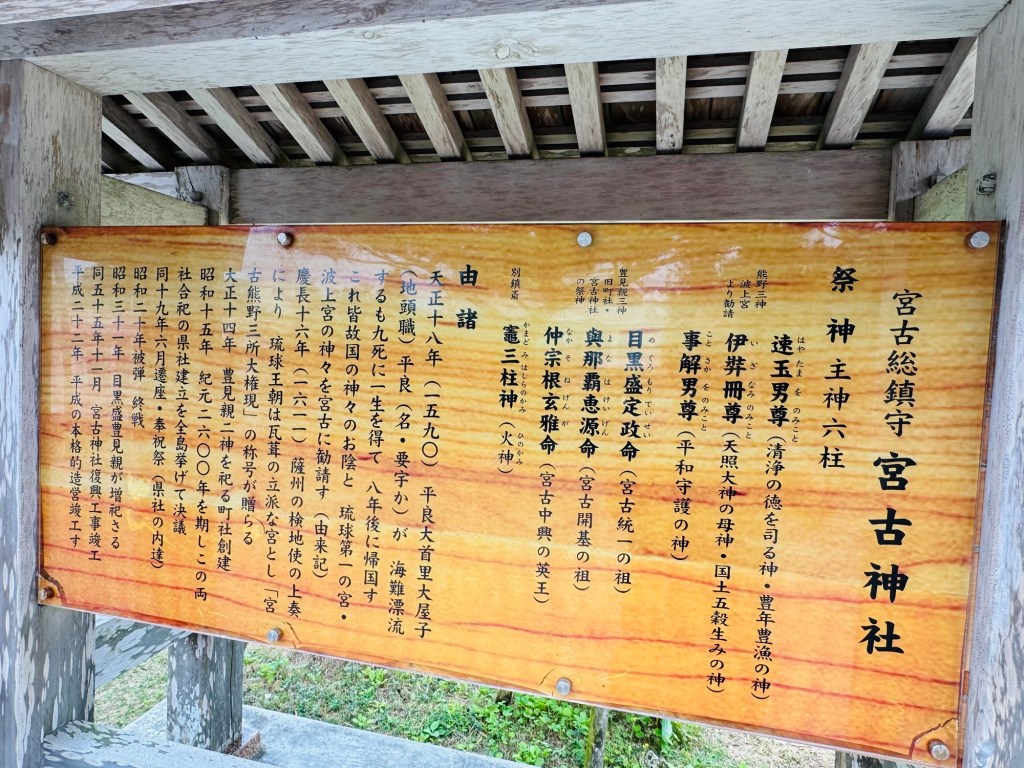 宮古総鎮守 宮古神社
祭神 主神六柱
熊野三神
波上宮
より勧請
速玉男尊（清浄の徳を司る神・豊年豊漁の神）
はやたま を のみこと
伊弉冊尊（天照大神の母神・国土五穀生みの神）
い ざ なみ のみこと
事解男尊（平和守護の神）
こと さか を のみこと
豊見親三神
旧町社・
宮古神社
の祭神
目黒盛定政命（宮古統一の祖）
め ぐろ もり てい せい
與那覇恵源命（宮古開基の祖）
よ な は けい げん
仲宗根玄雅命（宮古中興の英王）
なか そ ね げん が
別鎮斎
竈三柱神（火神）
かまど み はしらのかみ
ひのかみ
由諸
天正十八年（一五九〇） 平良大首里大屋子
（地頭職）平良（名・要宇か）が 海難漂流
するも九死に一生を得て 八年後に帰国す
これ皆故国の神々のお陰と 琉球第一の宮・
波上宮の神々を宮古に勧請す（由来記）
慶長十六年（一六一一） 薩州の検地使の上奏
により 琉球王朝は瓦葺の立派な宮とし「宮
古熊野三所大権現」の称号が贈らる
大正十四年 豊見親二神を祀る町社創建
昭和十五年 紀元二六〇〇年を期しこの両
社合祀の県社建立を全島挙げて決議
同十九年六月遷座・奉祝祭（県社の内達）
昭和二十年被弾 終戦
昭和三十一年 目黒盛豊見親が増祀さる
同五十五年十一月 宮古神社復興工事竣工
平成二十二年 平成の本格的造営竣工す